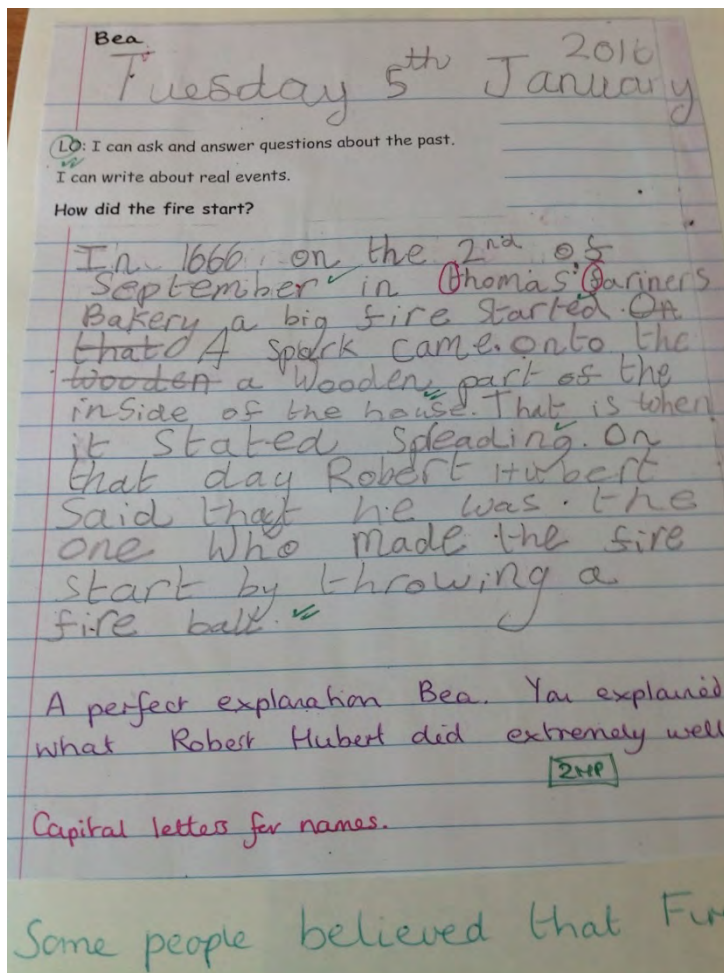 Bea
2016
Tuesday 5th January
LO: I can ask and answer questions about the past.
I can write about real events.
How did the fire start?
In 1666, on the 2nd of
September in thomas fariners
Bakery a big fire started. On
that A spark came onto the
wooden a wooden part of the
inside of the house. That is when
it stated spleading. On
that day Robert Hubert
Said that he was the
one who made the fire
start by throwing a
fire ball.
A perfect explanation Bea. You explained
what Robert Hubert did extremely well
2HP
Capital letters for names.
Some people believed that